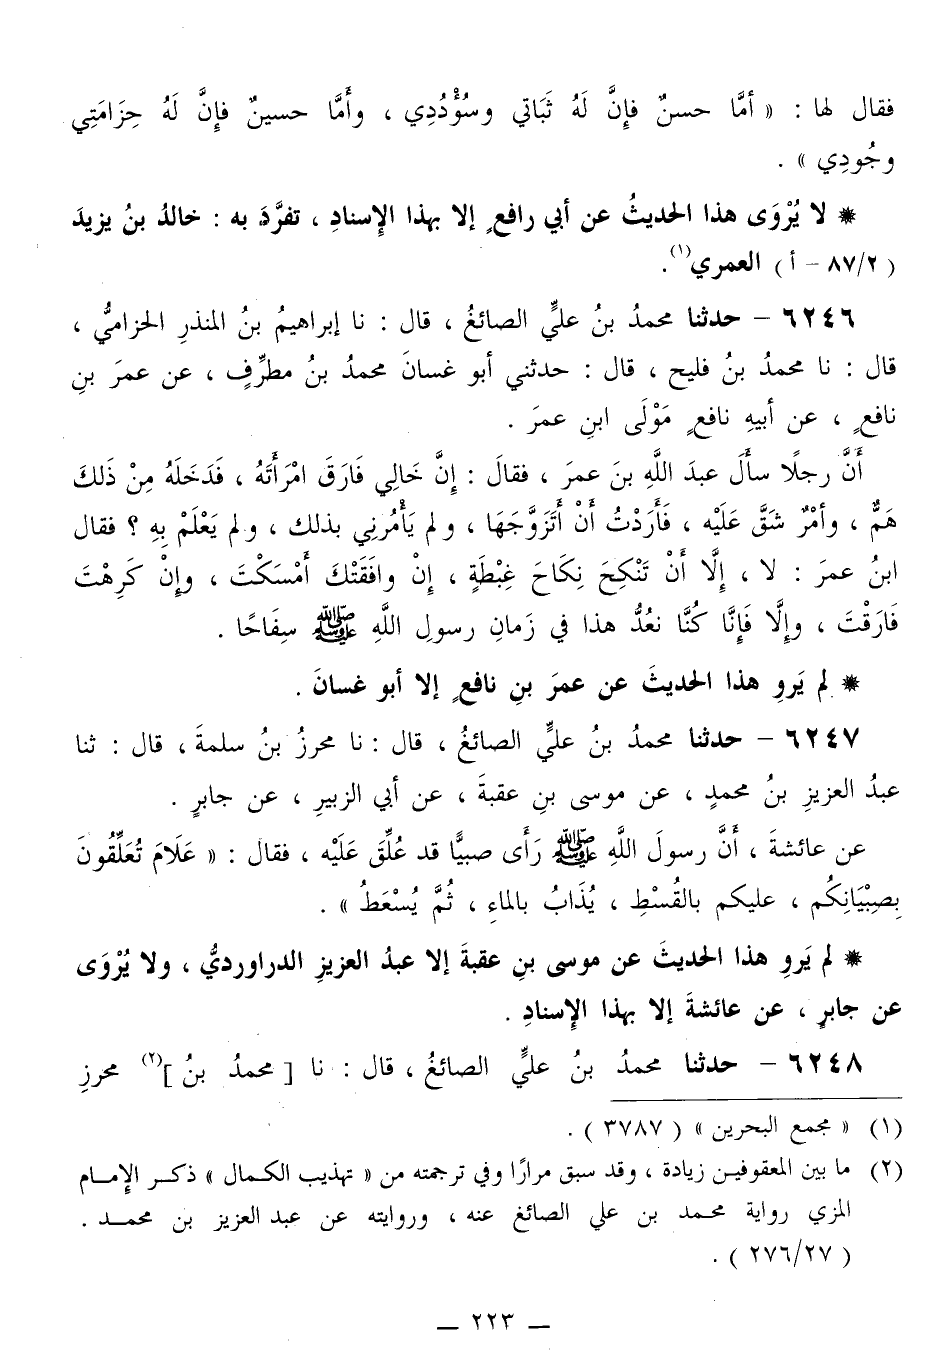 فقال لها : « أمَّا حسنٌ فإنَّ لَهُ ثَبَاتي وسُؤْدُدِي ، وأَمَّا حسينٌ فإنَّ لَهُ حِزَامَتِي
وجُودِي » .
* لا يُرْوَى هذا الحديثُ عن أبي رافعٍ إلا بهذا الإسنادِ ، تفرَّدَ به : خالدُ بنُ يزيدَ
( ٨٧/٢ – أ ) العمري(١).
٦٢٤٦ – حدثنا محمدُ بنُ عليٍّ الصائغُ ، قال : نا إبراهيمُ بنُ المنذرِ الحزاميُّ ،
قال : نا محمدُ بنُ فليح ، قال : حدثني أبو غسانَ محمدُ بنُ مطرِّفٍ ، عن عمرَ بنِ
نافعٍ ، عن أبيهِ نافعٍ مَوْلَى ابنِ عمرَ .
أَنَّ رجلًا سأَلَ عبدَ اللَّهِ بنَ عمرَ ، فقالَ : إِنَّ خَالِي فَارَقَ امْرَأَتَهُ ، فَدَخَلَهُ مِنْ ذَلكَ
هَمٌّ ، وأمْرٌ شَقَّ عَلَيْه ، فَأَرَدْتُ أَنْ أَتَزَوَّجَهَا ، ولم يَأْمُرْنِي بذلك ، ولم يَعْلَمْ بِهِ ؟ فقال
ابنُ عمرَ : لا ، إِلَّا أَنْ تَنْكِحَ نِكَاحَ غِبْطَةٍ ، إِنْ وافَقَتْكَ أَمْسَكْتَ ، وإِنْ كَرِهْتَ
فَارَقْتَ ، وإِلَّا فَإِنَّا كُنَّا نعُدُّ هذا في زَمانِ رسولِ اللَّهِ ﷺ سِفَاحًا .
* لم يَروِ هذا الحديثَ عن عمرَ بنِ نافعٍ إلا أبو غسانَ .
٦٢٤٧ – حدثنا محمدُ بنُ عليٍّ الصائغُ ، قال : نا محرزُ بنُ سلمةَ ، قال : ثنا
عبدُ العزيزِ بنُ محمدٍ ، عن موسى بنِ عقبةَ ، عن أبي الزبيرِ ، عن جابرٍ .
عن عائشةَ ، أَنَّ رسولَ اللَّهِ ﷺ رَأَى صبيًّا قد عُلِّقَ عَلَيْه ، فقال : « عَلَامَ تُعَلِّقُونَ
بِصِبْيَانِكُم ، عليكم بالقُسْطِ ، يُذَابُ بالماءِ ، ثُمَّ يُسْعَطُ » .
* لم يَروِ هذا الحديثَ عن موسى بنِ عقبةَ إلا عبدُ العزيزِ الدراورديُّ ، ولا يُرْوَى
عن جابرٍ ، عن عائشةَ إلا بهذا الإسنادِ .
٦٢٤٨ – حدثنا محمدُ بنُ عليٍّ الصائغُ ، قال : نا [ محمدُ بنُ ](٢) محرزِ
(١) « مجمع البحرين » ( ٣٧٨٧ ) .
(٢) ما بين المعقوفين زيادة ، وقد سبق مرارًا وفي ترجمته من « تهذيب الكمال » ذكر الإمام
المزي رواية محمد بن علي الصائغ عنه ، وروايته عن عبد العزيز بن محمد .
( ٢٧٦/٢٧ ) .
— ٢٢٣ —